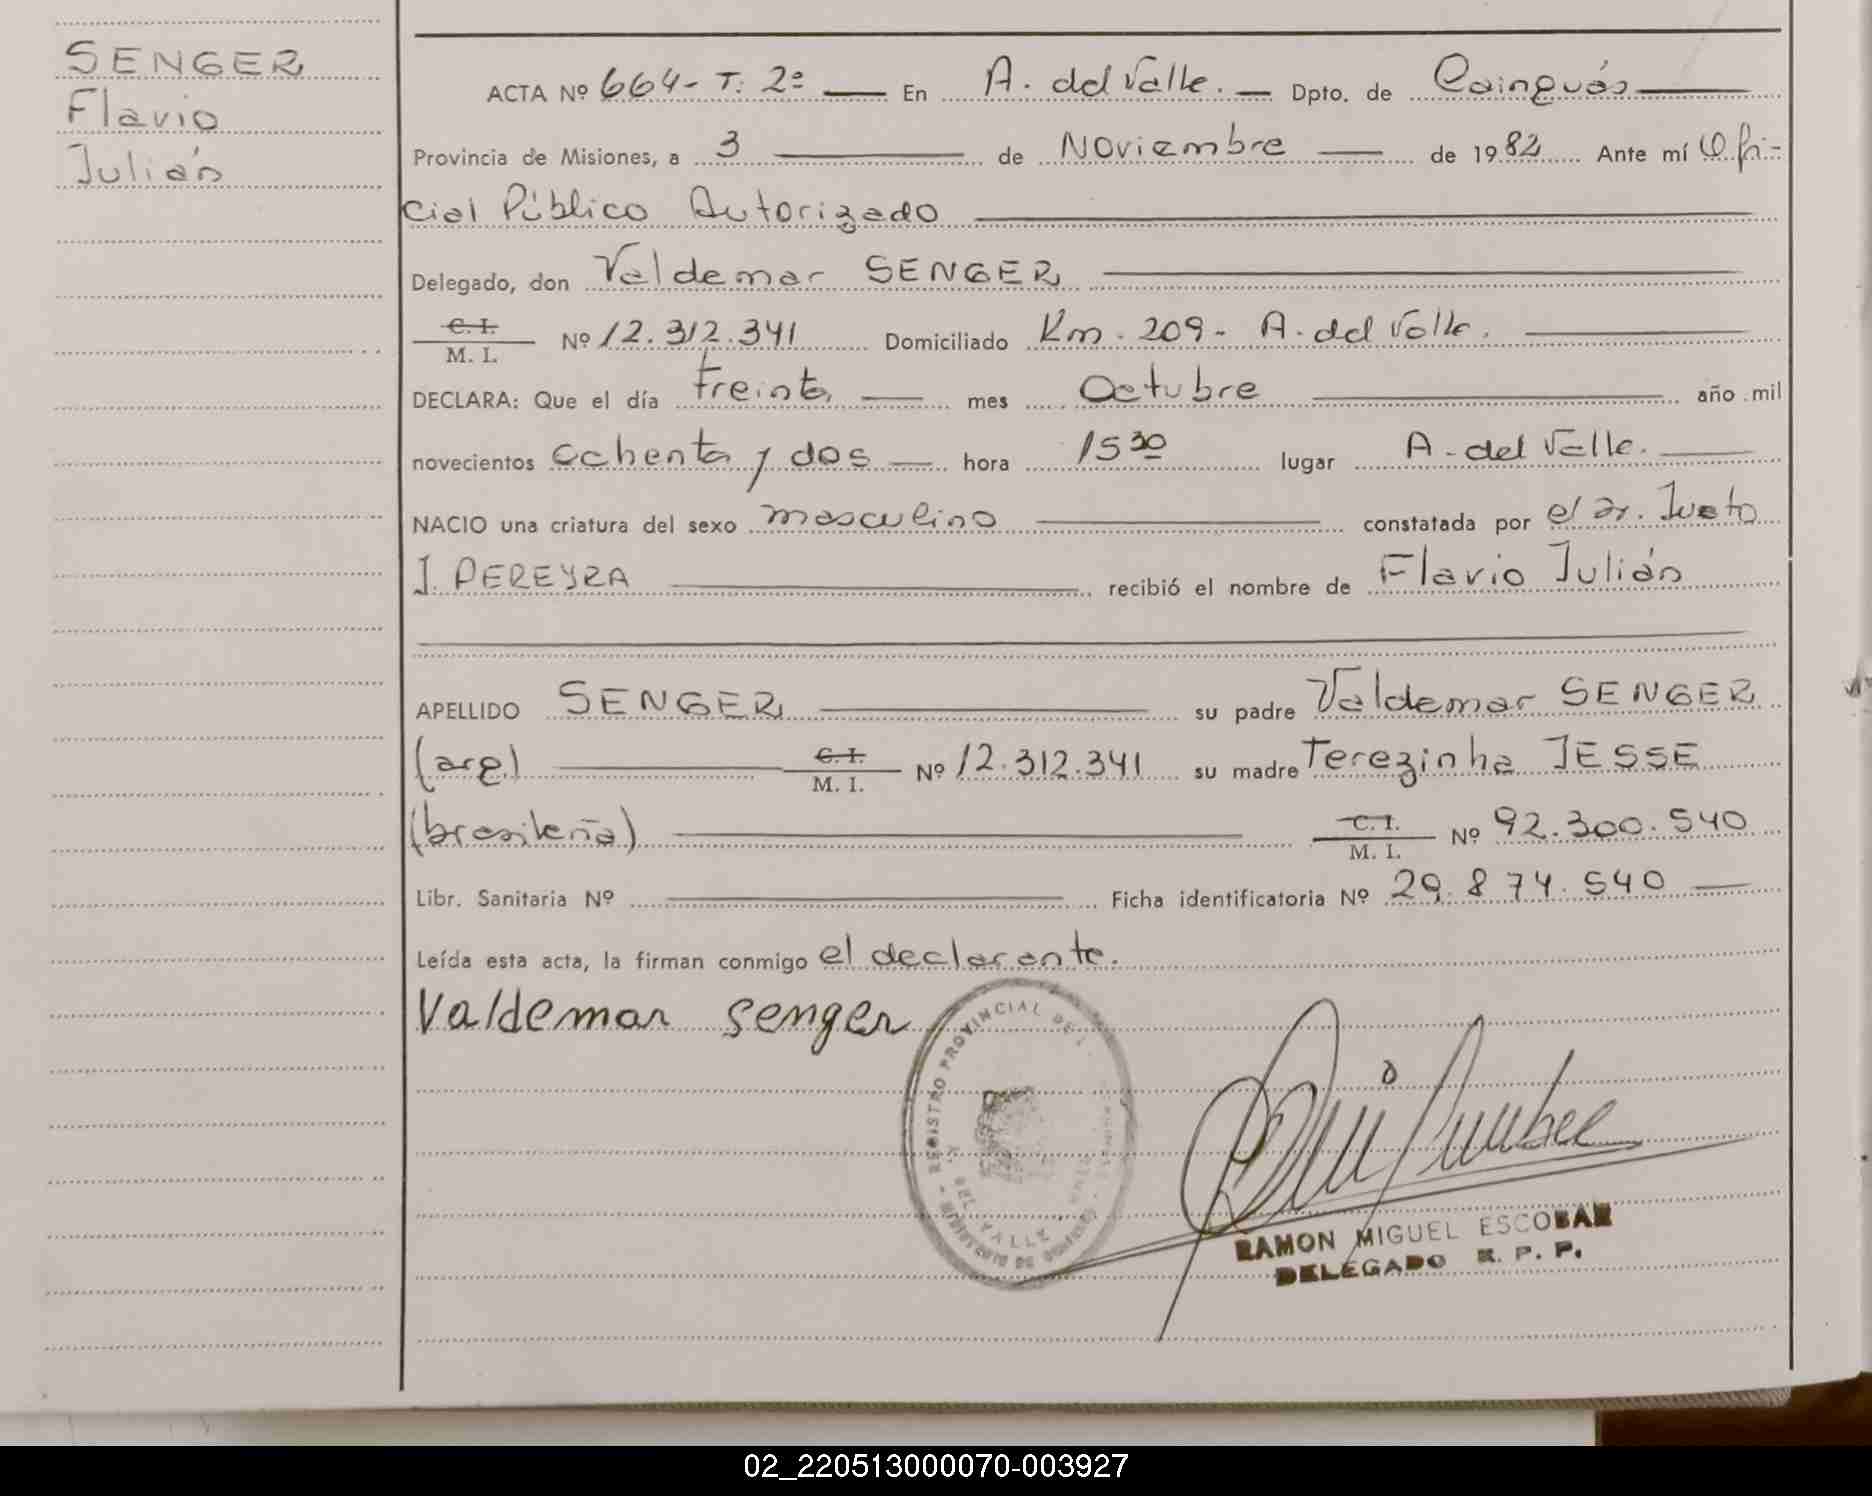 SENGER
Flavio
Julián
ACTA Nº 664- T: 2º — En A. del Valle. — Dpto. de Cainguás
Provincia de Misiones, a 3 de Noviembre de 1982 Ante mí Ofi-
cial Público Autorizado
Delegado, don Valdemar SENGER
C. I.
M. I. Nº 12.312.341 Domiciliado Km. 209- A. del Valle.
DECLARA: Que el día treinta mes Octubre año mil
novecientos ochenta y dos hora 15 30 lugar A. del Valle.
NACIO una criatura del sexo masculino constatada por el Dr. Justo
J. PEREYRA recibió el nombre de Flavio Julián
APELLIDO SENGER su padre Valdemar SENGER
(arg) C. I.
M. I. Nº 12.312.341 su madre Terezinha JESSE
(brasileña) C. I.
M. I. Nº 92.300.540
Libr. Sanitaria Nº Ficha identificatoria Nº 29.874.540
Leída esta acta, la firman conmigo el declarante.
Valdemar senger
REGISTRO PROVINCIAL DE L
DEL VALLE
RAMON MIGUEL ESCOBAR
DELEGADO R. P. P.
02_220513000070-003927